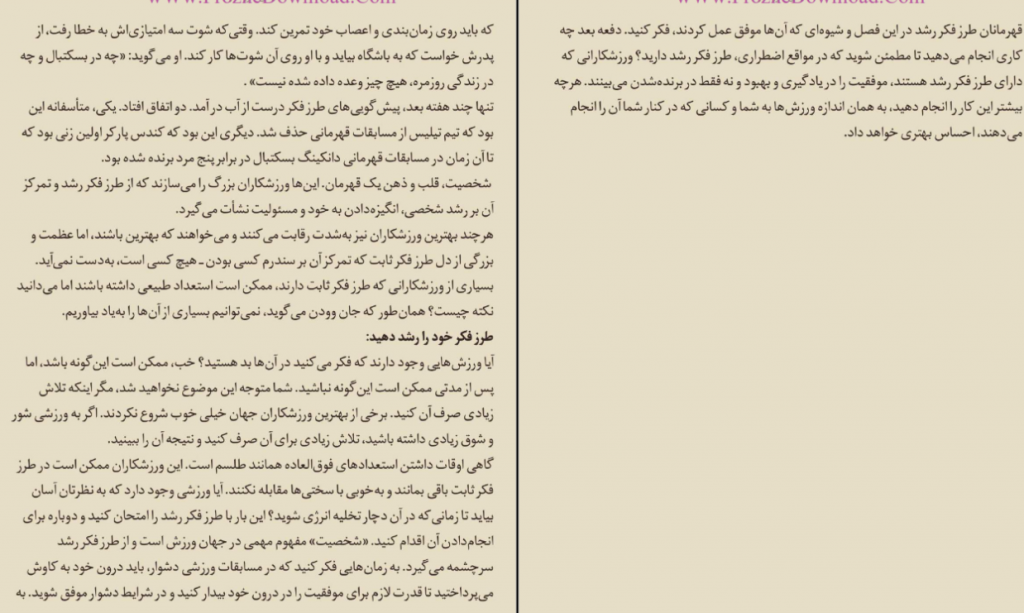 که باید روی زمان‌بندی و اعصاب خود تمرین کند. وقتی‌که شوت سه امتیازی‌اش به خطا رفت، از
پدرش خواست که به باشگاه بیاید و با او روی آن شوت‌ها کار کند. او می‌گوید: «چه در بسکتبال و چه
در زندگی روزمره، هیچ چیز وعده داده شده نیست» .
تنها چند هفته بعد، پیش‌گویی‌های طرز فکر درست از آب در آمد. دو اتفاق افتاد. یکی، متأسفانه این
بود که تیم تیلیس از مسابقات قهرمانی حذف شد. دیگری این بود که کندس پارکر اولین زنی بود که
تا آن زمان در مسابقات قهرمانی دانکینگ بسکتبال در برابر پنج مرد برنده شده بود.
شخصیت، قلب و ذهن یک قهرمان. این‌ها ورزشکاران بزرگ را می‌سازند که از طرز فکر رشد و تمرکز
آن بر رشد شخصی، انگیزه‌دادن به خود و مسئولیت نشأت می‌گیرد.
هرچند بهترین ورزشکاران نیز به‌شدت رقابت می‌کنند و می‌خواهند که بهترین باشند، اما عظمت و
بزرگی از دل طرز فکر ثابت که تمرکز آن بر سندرم کسی بودن ـ هیچ کسی است، به‌دست نمی‌آید.
بسیاری از ورزشکارانی که طرز فکر ثابت دارند، ممکن است استعداد طبیعی داشته باشند اما می‌دانید
نکته چیست؟ همان‌طور که جان وودن می‌گوید، نمی‌توانیم بسیاری از آن‌ها را به‌یاد بیاوریم.
طرز فکر خود را رشد دهید:
آیا ورزش‌هایی وجود دارند که فکر می‌کنید در آن‌ها بد هستید؟ خب، ممکن است این‌گونه باشد، اما
پس از مدتی ممکن است این‌گونه نباشید. شما متوجه این موضوع نخواهید شد، مگر اینکه تلاش
زیادی صرف آن کنید. برخی از بهترین ورزشکاران جهان خیلی خوب شروع نکردند. اگر به ورزشی شور
و شوق زیادی داشته باشید، تلاش زیادی برای آن صرف کنید و نتیجه آن را ببینید.
گاهی اوقات داشتن استعدادهای فوق‌العاده همانند طلسم است. این ورزشکاران ممکن است در طرز
فکر ثابت باقی بمانند و به‌خوبی با سختی‌ها مقابله نکنند. آیا ورزشی وجود دارد که به نظرتان آسان
بیاید تا زمانی‌که در آن دچار تخلیه انرژی شوید؟ این بار با طرز فکر رشد را امتحان کنید و دوباره برای
انجام‌دادن آن اقدام کنید. «شخصیت» مفهوم مهمی در جهان ورزش است و از طرز فکر رشد
سرچشمه می‌گیرد. به زمان‌هایی فکر کنید که در مسابقات ورزشی دشوار، باید درون خود به کاوش
می‌پرداختید تا قدرت لازم برای موفقیت را در درون خود بیدار کنید و در شرایط دشوار موفق شوید. به
قهرمانان طرز فکر رشد در این فصل و شیوه‌ای که آن‌ها موفق عمل کردند، فکر کنید. دفعه بعد چه
کاری انجام می‌دهید تا مطمئن شوید که در مواقع اضطراری، طرز فکر رشد دارید؟ ورزشکارانی که
دارای طرز فکر رشد هستند، موفقیت را در یادگیری و بهبود و نه فقط در برنده‌شدن می‌بینند. هرچه
بیشتر این کار را انجام دهید، به همان اندازه ورزش‌ها به شما و کسانی که در کنار شما آن را انجام
می‌دهند، احساس بهتری خواهد داد.